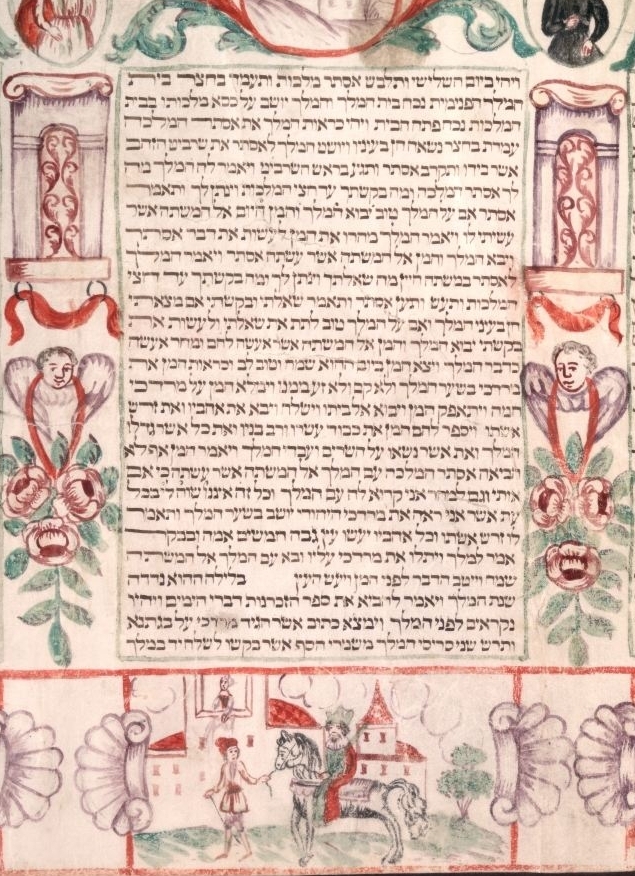 ויהי ביום השלישי ותלבש אסתר מלכות ותעמד בחצר בית
המלך הפנימית נכח בית המלך והמלך יושב על כסא מלכותו בבית
המלכות נכח פתח הבית ויהי כראות המלך את אסתר המלכה
עמדת בחצר נשאה חן בעיניו ויושט המלך לאסתר את שרביט הזהב
אשר בידו ותקרב אסתר ותגע בראש השרביט ויאמר לה המלך מה
לך אסתר המלכה ומה בקשתך עד חצי המלכות וינתן לך ותאמר
אסתר אם על המלך טוב יבוא המלך והמן היום אל המשתה אשר
עשיתי לו ויאמר המלך מהרו את המן לעשות את דבר אסתר
ויבא המלך והמן אל המשתה אשר עשתה אסתר ויאמר המלך
לאסתר במשתה היין מה שאלתך וינתן לך ומה בקשתך עד חצי
המלכות ותעש ותען אסתר ותאמר שאלתי ובקשתי אם מצאתי
חן בעיני המלך ואם על המלך טוב לתת את שאלתי ולעשות את
בקשתי יבוא המלך והמן אל המשתה אשר אעשה להם ומחר אעשה
כדבר המלך ויצא המן ביום ההוא שמח וטוב לב וכראות המן את
מרדכי בשער המלך ולא קם ולא זע ממנו וימלא המן על מרדכי
חמה ויתאפק המן ויבוא אל ביתו וישלח ויבא את אהביו ואת זרש
אשתו ויספר להם המן את כבוד עשרו ורב בניו ואת כל אשר גדלו
המלך ואת אשר נשאו על השרים ועבדי המלך ויאמר המן אף לא
הביאה אסתר המלכה עם המלך אל המשתה אשר עשתה כי אם
אותי וגם למחר אני קרוא לה עם המלך וכל זה איננו שוה לי בכל
עת אשר אני ראה את מרדכי היהודי יושב בשער המלך ותאמר
לו זרש אשתו וכל אהביו יעשו עץ גבה חמשים אמה ובבקר
אמר למלך ויתלו את מרדכי עליו ובא עם המלך אל המשתה
שמח וייטב הדבר לפני המן ויעש העץ בלילה ההוא נדדה
שנת המלך ויאמר להביא את ספר הזכרנות דברי הימים ויהיו
נקראים לפני המלך וימצא כתוב אשר הגיד מרדכי על בגתנא
ותרש שני סריסי המלך משמרי הסף אשר בקשו לשלח יד במלך